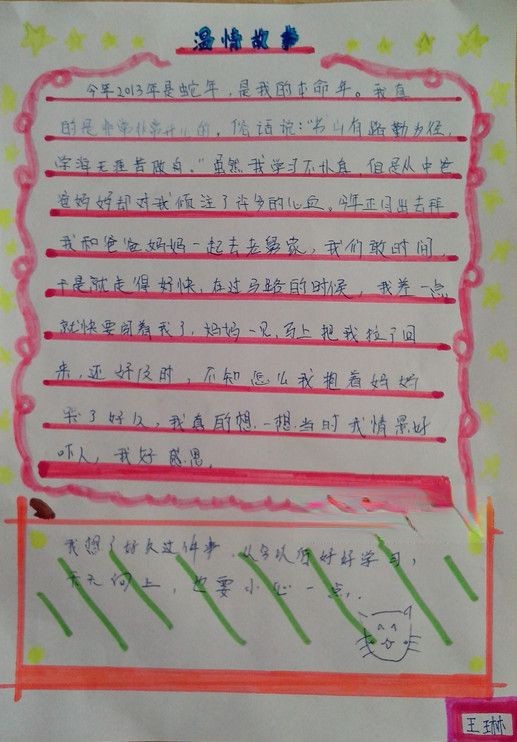 温情故事
今年2013年是蛇年，是我的本命年。我真
的是非常非常开心的。俗话说："书山有路勤为径，
学海无涯苦做舟。"虽然我学习不认真，但是从中爸
爸妈妈却对我倾注了许多的心血。今年正月出去拜
我和爸爸妈妈一起去老舅家，我们敢时间，
于是就走得好快，在过马路的时候，我差一点
就快要闭着我了，妈妈一见马上把我拉了回
来，还好及时，不知怎么我抱着妈妈
哭了好久，我真的想一想当时我情景好
吓人，我好感恩。
我想了好久这件事，从今以后好好学习，
天天向上，也要小心一点。
王琳